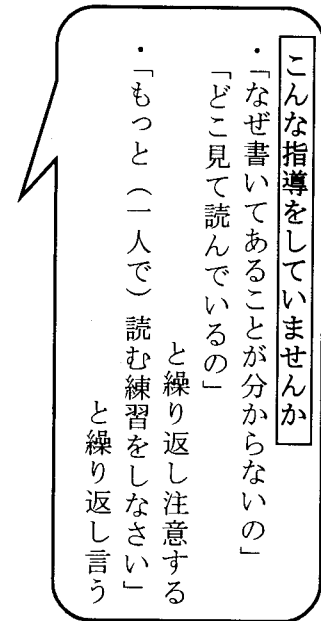 こんな指導をしていませんか
・「なぜ書いてあることが分からないの」
「どこ見て読んでいるの」
と繰り返し注意する
・「もっと（一人で）読む練習をしなさい」
と繰り返し言う